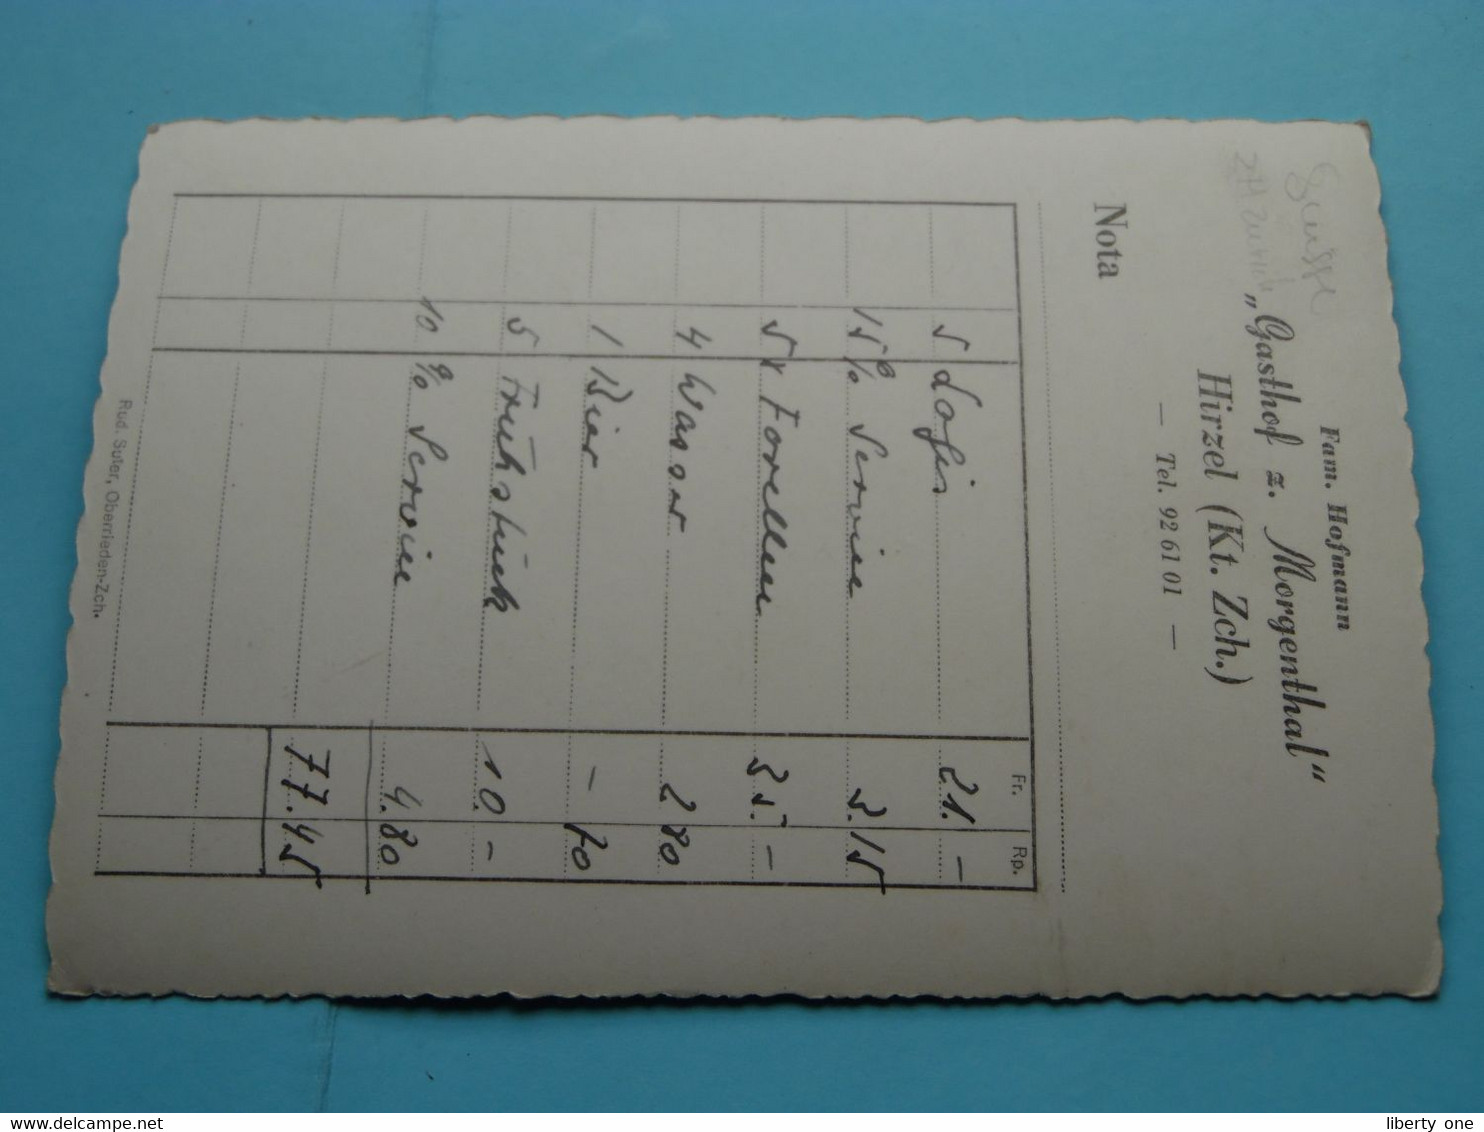 Suisse
Zürich
Fam. Hofmann
„Gasthof z. Morgenthal“
Hirzel (Kt. Zch.)
— Tel. 92 61 01 —
Nota
Fr. Rp.
5 Logis 21. –
15 % Service 3.15
5 x Forellen 35. –
4 Wasser 2 80
1 Bier – 70
5 Frühstück 10. –
10 % Service 4.80
77.45
Rud. Suter, Oberrieden-Zch.
liberty one